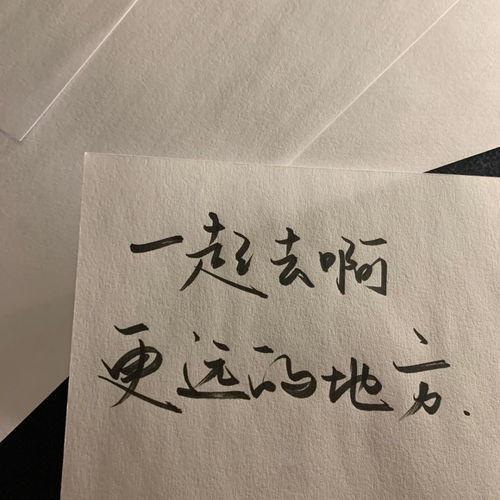 一起去啊
更远的地方.